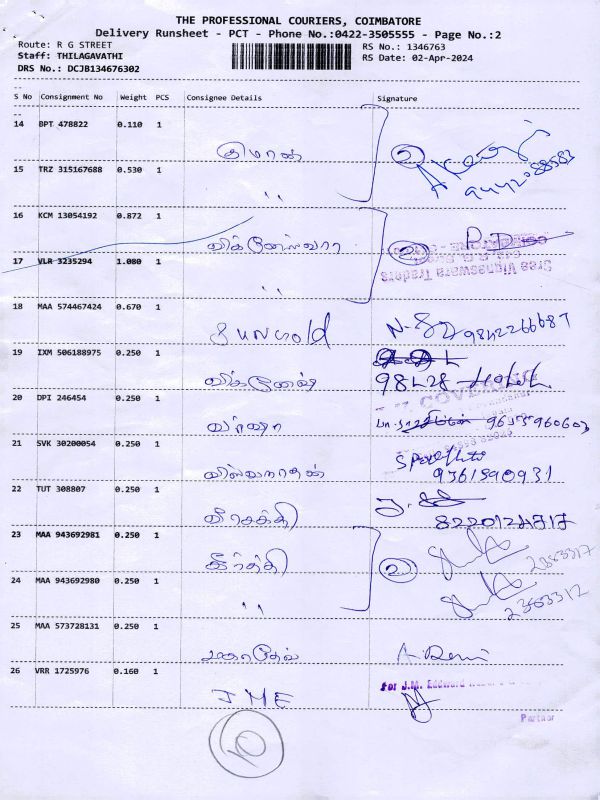 THE PROFESSIONAL COURIERS, COIMBATORE
Delivery Runsheet - PCT - Phone No.:0422-3505555 - Page No.:2
Route: R G STREET
RS No.: 1346763
Staff: THILAGAVATHI
RS Date: 02-Apr-2024
DRS No.: DCJB134676302
S No Consignment No Weight PCS Consignee Details Signature
14 BPT 478822 0.110 1
2
15 TRZ 315167688 0.530 1
"
16 KCM 13054192 0.872 1
விக்னேஸ்வரா 2
Sree Vignaswara Traders
17 VLR 3235294 1.080 1
"
18 MAA 574467424 0.670 1
Sungold 9842266687
19 IXM 506188975 0.250 1
விக்னேஷ்
20 DPI 246454 0.250 1
வர்ஷா
21 SVK 30200054 0.250 1
விஸ்வநாதன் 9361590931
22 TUT 308807 0.250 1
வீரசக்தி
23 MAA 943692981 0.250 1
கீர்த்தி 2
24 MAA 943692980 0.250 1
"
25 MAA 573728131 0.250 1
மகாதேவ்
26 VRR 1725976 0.160 1
JME
for J.M.
Partner